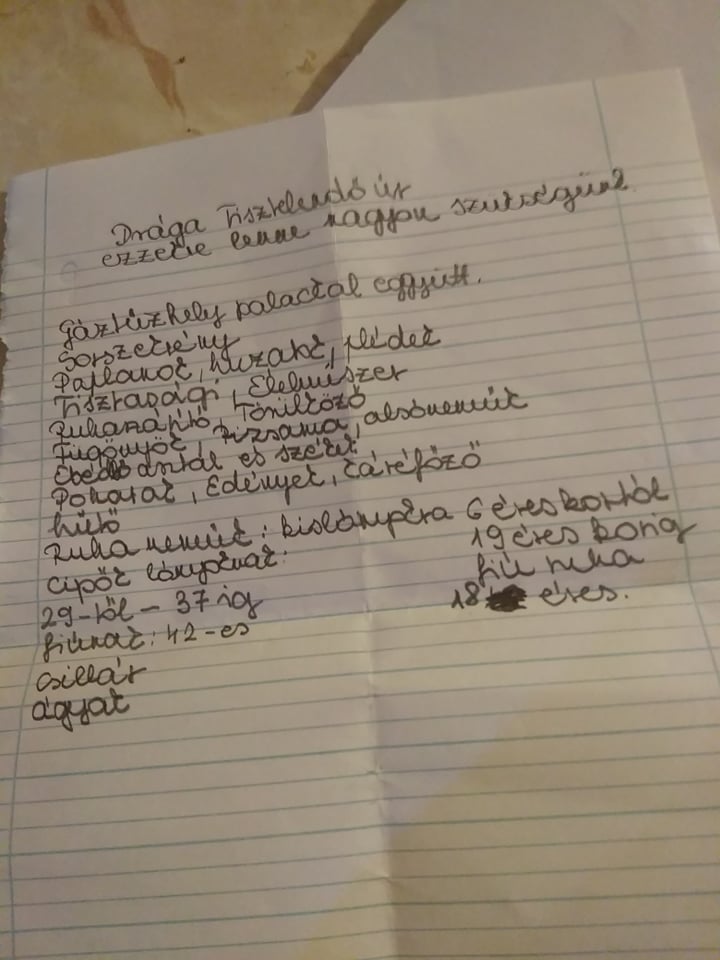 Drága Tisztelendő úr
ezzekre lenne nagyon szükségünk
gáztűzhely palackal együtt.
Sorszekrény
Paplanok, huzakk, plédek
Tisztasági, Élelmiszer
Ruhaszárító, Törülköző
Függönyök, Pizsama, alsónemük
Ebédlő asztal és székek
Poharak, Edények, Kávéfőző
hütő
Ruha nemük: kislányokra 6 éves kortól
19 éves korig
Cipők lányoknak:
fiú ruha
29-től - 37 ig
18 éves.
fiúnak: 42-es
csillár
ágyak